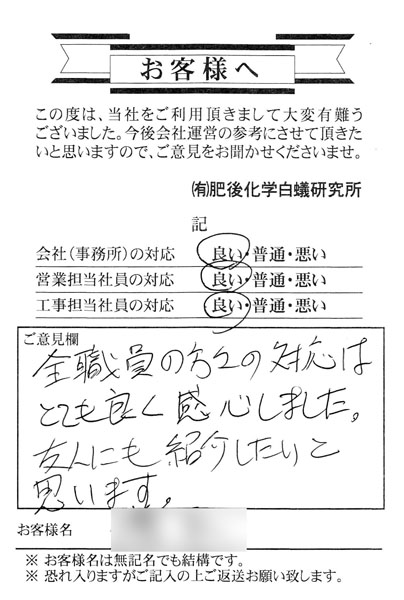 お客様へ
この度は、当社をご利用頂きまして大変有難う
ございました。今後会社運営の参考にさせて頂きた
いと思いますので、ご意見をお聞かせくださいませ。
㈲肥後化学白蟻研究所
記
会社(事務所)の対応 良い・普通・悪い
営業担当社員の対応 良い・普通・悪い
工事担当社員の対応 良い・普通・悪い
ご意見欄
全職員の方々の対応は
とても良く感心しました。
友人にも紹介したいと
思います。
お客様名
※ お客様名は無記名でも結構です。
※ 恐れ入りますがご記入の上ご返送お願い致します。